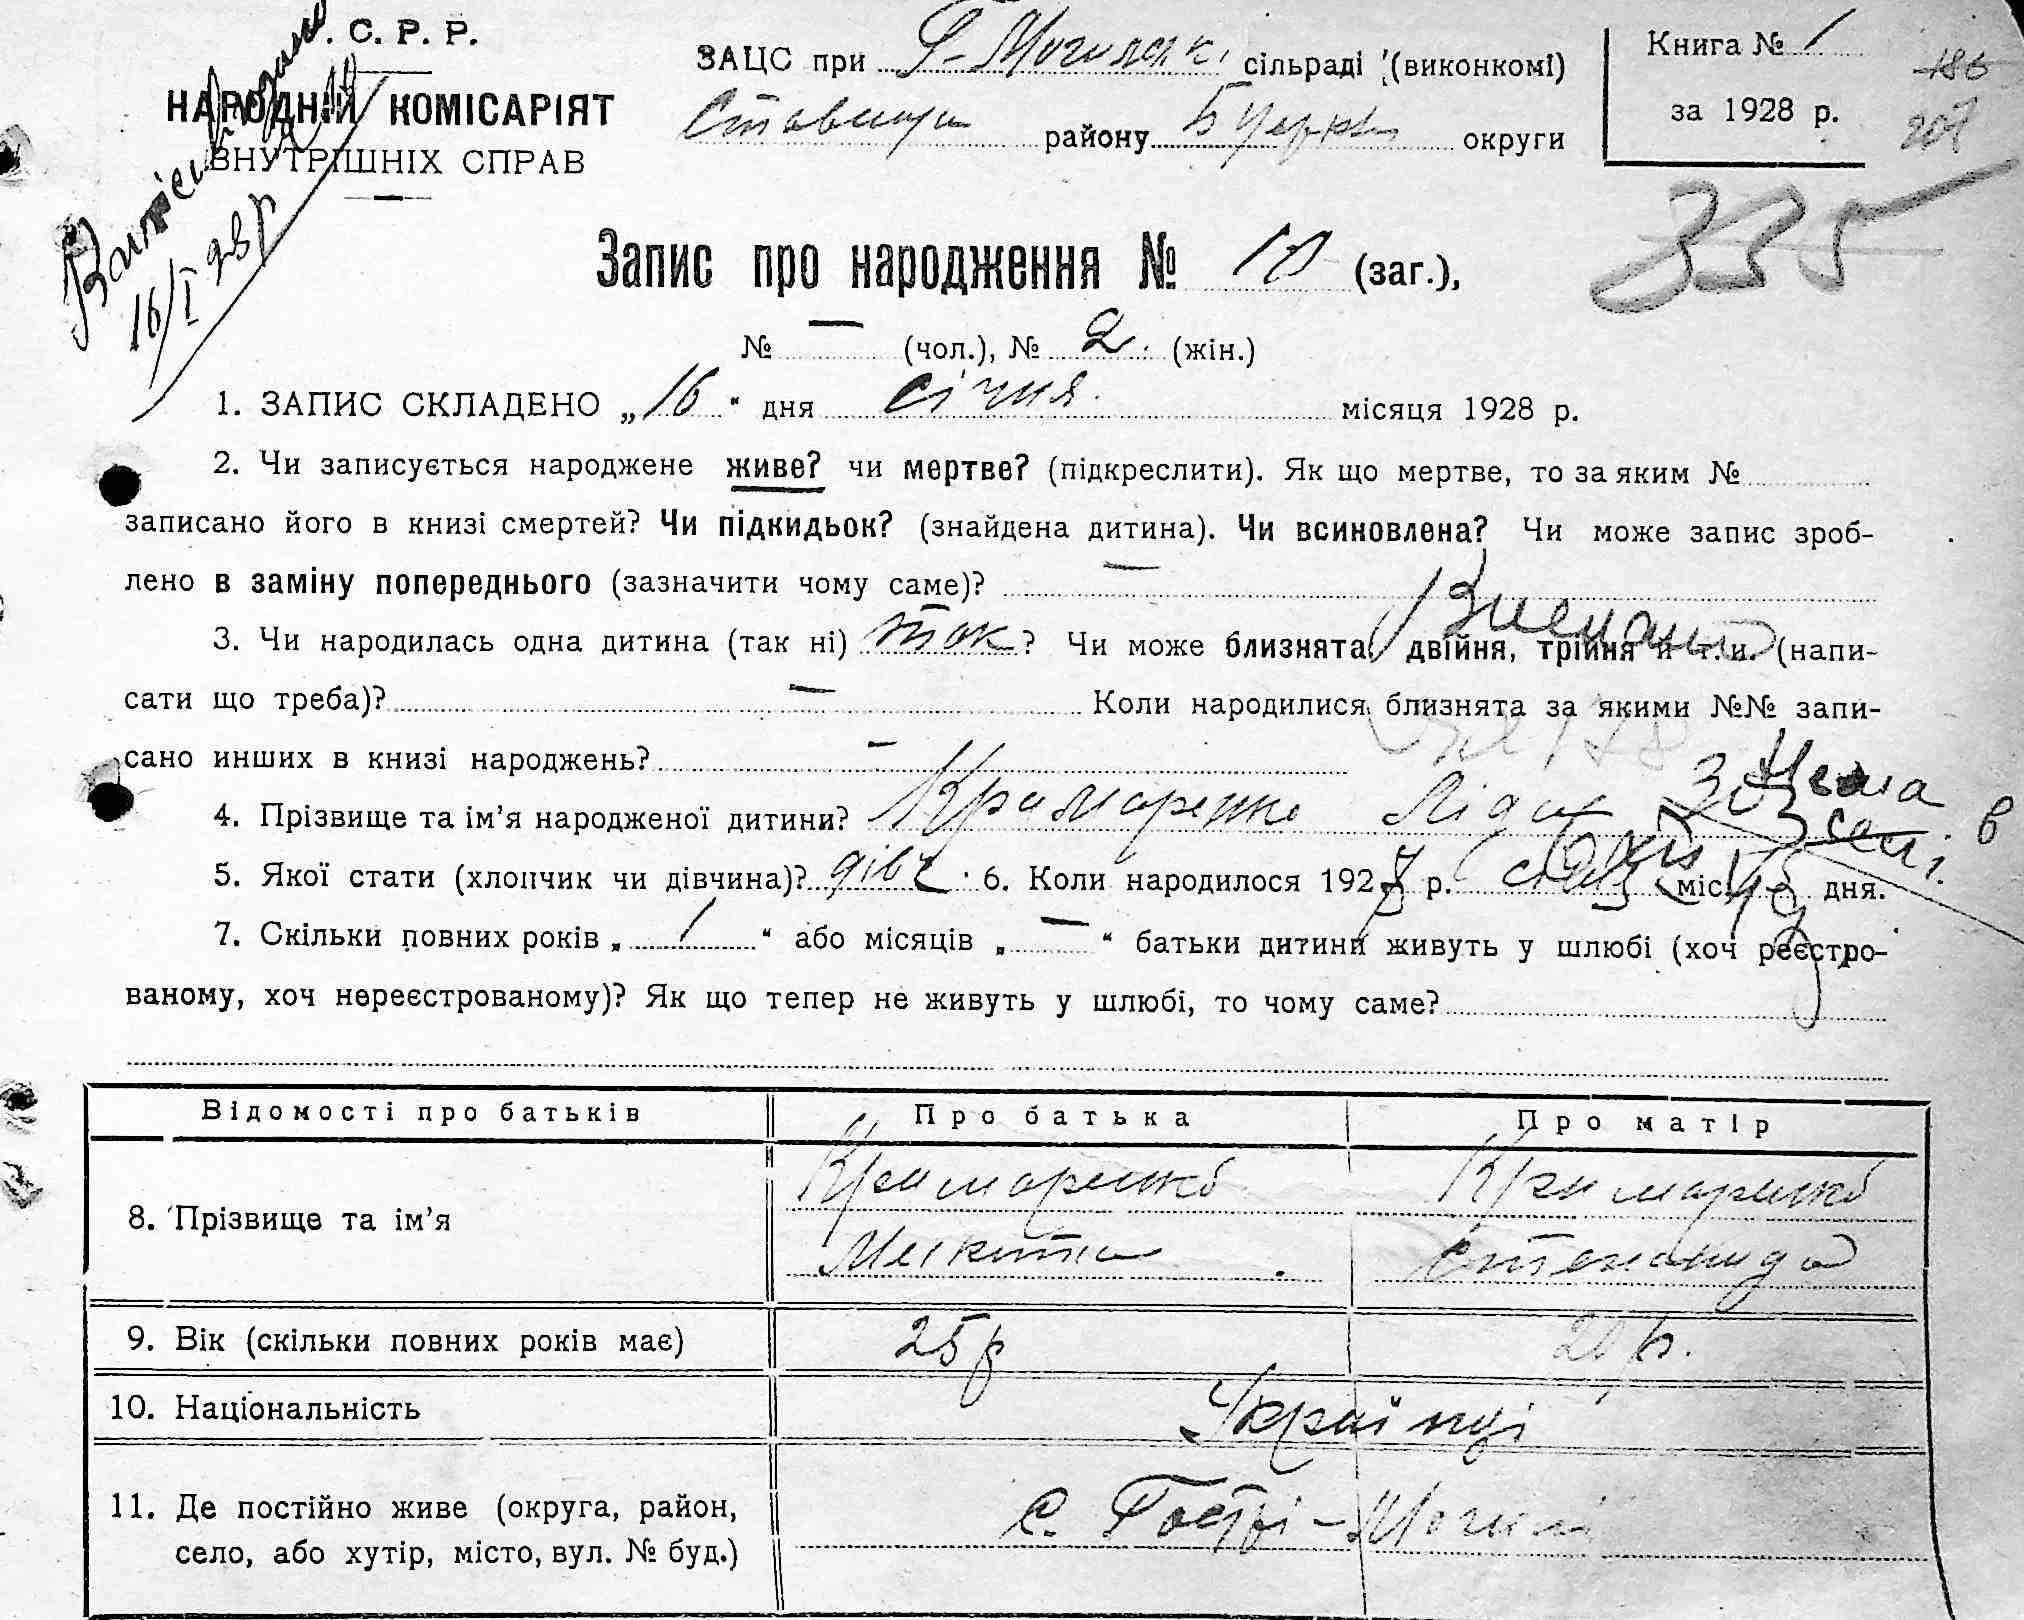 . С. Р. Р.
НАРОДНІЙ КОМІСАРІЯТ
ВНУТРІШНІХ СПРАВ
16/I 28 р
ЗАЦС при Г-Могильські сільраді (виконкомі)
Ставищ району Б Церкв округи
Книга № 1
за 1928 р.
186
207
335
Запис про народження № 10 (заг.),
№ — (чол.), № 2 (жін.)
1. ЗАПИС СКЛАДЕНО „16“ дня січня місяця 1928 р.
2. Чи записується народжене живе? чи мертве? (підкреслити). Як що мертве, то за яким №
записано його в книзі смертей? Чи підкидьок? (знайдена дитина). Чи всиновлена? Чи може запис зроб-
лено в заміну попереднього (зазначити чому саме)? —
3. Чи народилась одна дитина (так ні) так? Чи може близнята, двійня, трійня й т. и. (напи-
сати що треба)? — Коли народилися близнята за якими №№ запи-
сано инших в книзі народжень? —
4. Прізвище та ім’я народженої дитини? Крамаренко Ліда
Нема в селі.
5. Якої статі (хлопчик чи дівчина)? дівч. 6. Коли народилося 1928 р. січ міс. дня.
7. Скільки повних років „1“ або місяців „—“ батьки дитини живуть у шлюбі (хоч реєстро-
ваному, хоч нереєстрованому)? Як що тепер не живуть у шлюбі, то чому саме?
Відомості про батьків Про батька Про матір
8. Прізвище та ім’я Крамаренко Микита Крамаренко Степанида
9. Вік (скільки повних років має) 25 р р.
10. Національність Українці
11. Де постійно живе (округа, район, село, або хутір, місто, вул. № буд.) с. Гострі-Могили